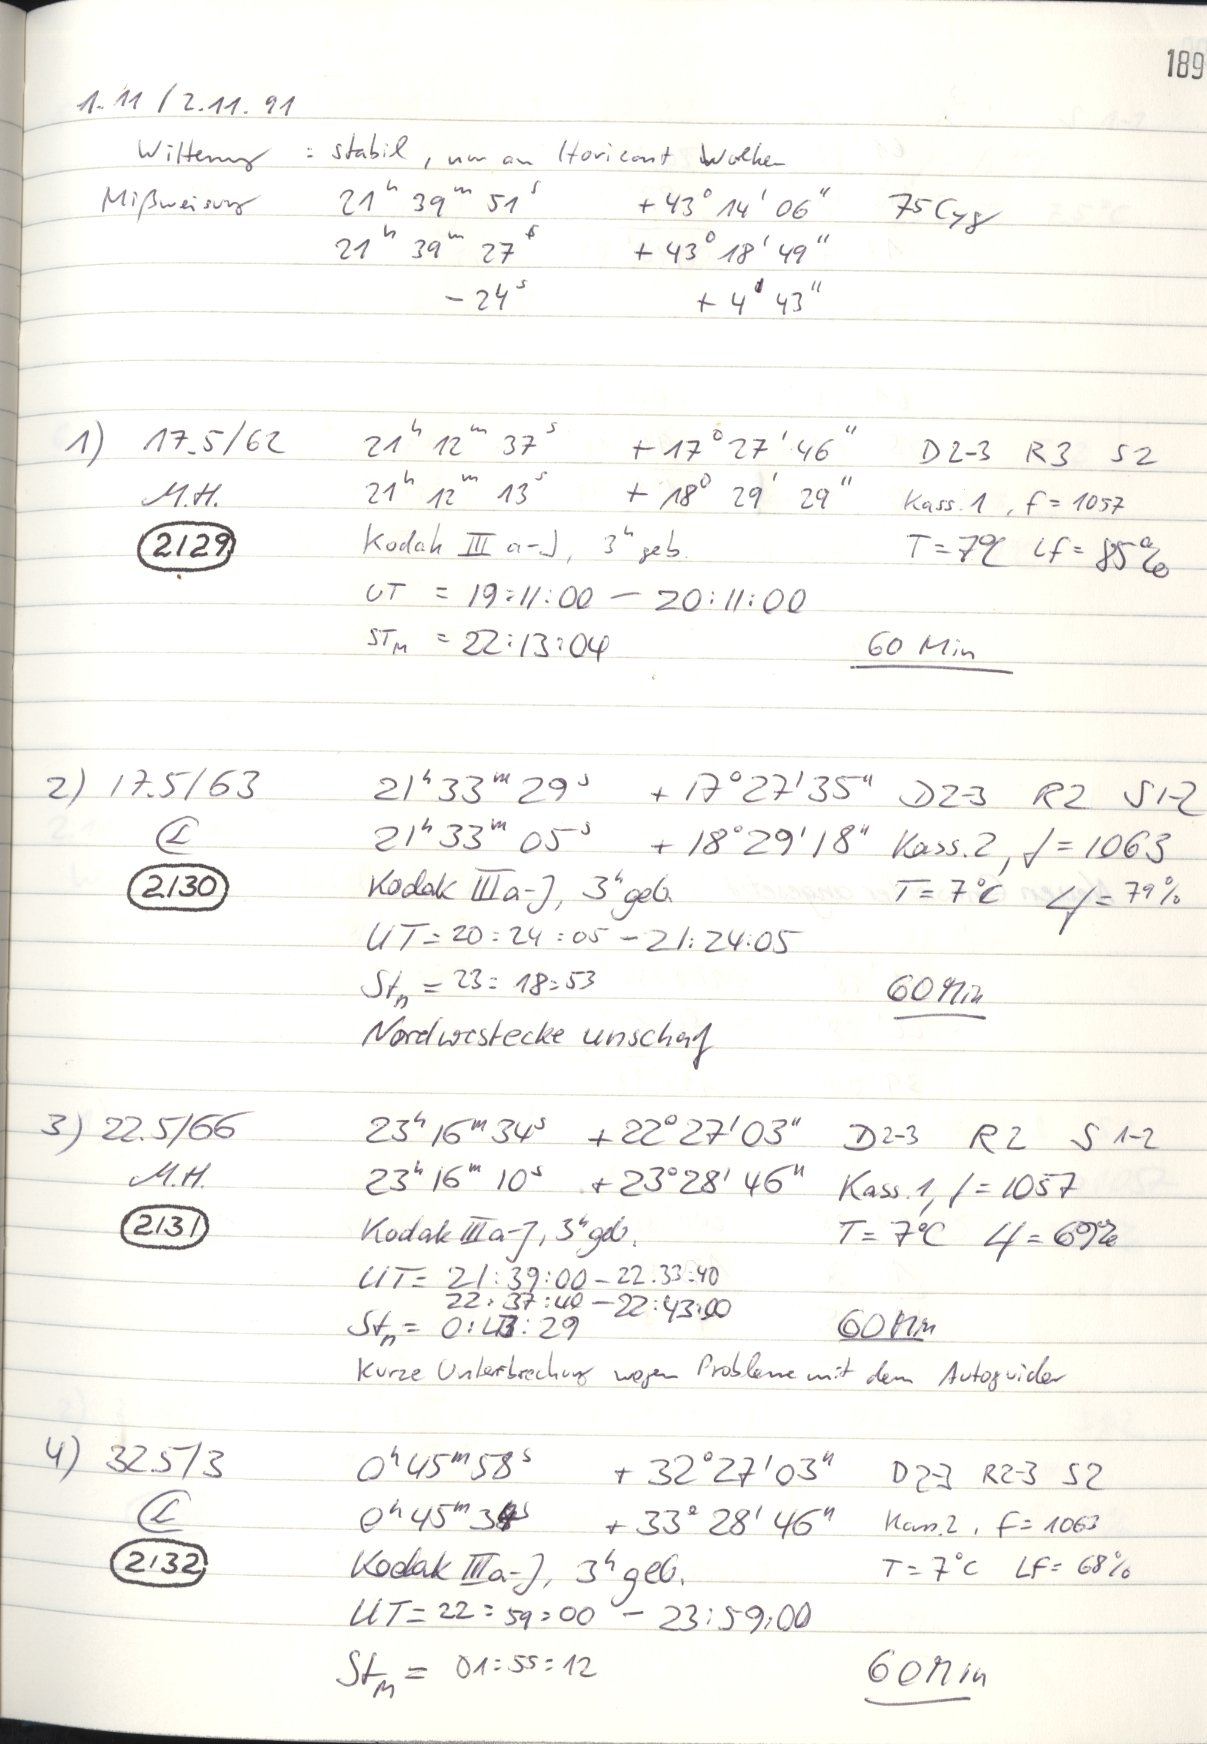 189
1.11 / 2.11.91
Witterung : stabil, nur am Horizont Wolken
Mißweisung 21ʰ 39ᵐ 51ˢ +43° 14' 06" 75 Cyg
21ʰ 39ᵐ 27ˢ +43° 18' 49"
-24ˢ +4' 43"
1) 17.5/62 21ʰ 12ᵐ 37ˢ +17° 27' 46" D2-3 R3 S2
M.H. 21ʰ 12ᵐ 13ˢ +18° 29' 29" Kass. 1, f = 1057
2129 Kodak III a-J, 3ʰ geb. T = 7°C Lf = 85%
UT = 19:11:00 - 20:11:00
STM = 22:13:04 60 Min
2) 17.5/63 21ʰ 33ᵐ 29ˢ +17° 27' 35" D2-3 R2 S1-2
21ʰ 33ᵐ 05ˢ +18° 29' 18" Kass. 2, f = 1063
2130 Kodak IIIa-J, 3ʰ geb. T = 7°C Lf = 79%
UT = 20:24:05 - 21:24:05
Stm = 23:18:53 60 Min
Nordwestecke unschaf
3) 22.5/66 23ʰ 16ᵐ 34ˢ +22° 27' 03" D2-3 R2 S1-2
M.H. 23ʰ 16ᵐ 10ˢ +23° 28' 46" Kass. 1, f = 1057
2131 Kodak IIIa-J, 3ʰ geb. T = 7°C Lf = 69%
UT = 21:39:00 - 22:33:40
22:37:40 - 22:43:00
Stm = 0:43:29 60 Min
Kurze Unterbrechung wegen Probleme mit dem Autoguider
4) 32.5/3 0ʰ 45ᵐ 58ˢ +32° 27' 03" D2-3 R2-3 S2
0ʰ 45ᵐ 34ˢ +33° 28' 46" Kass. 2, f = 1063
2132 Kodak IIIa-J, 3ʰ geb. T = 7°C Lf = 68%
UT = 22:59:00 - 23:59:00
StM = 01:55:12 60 Min